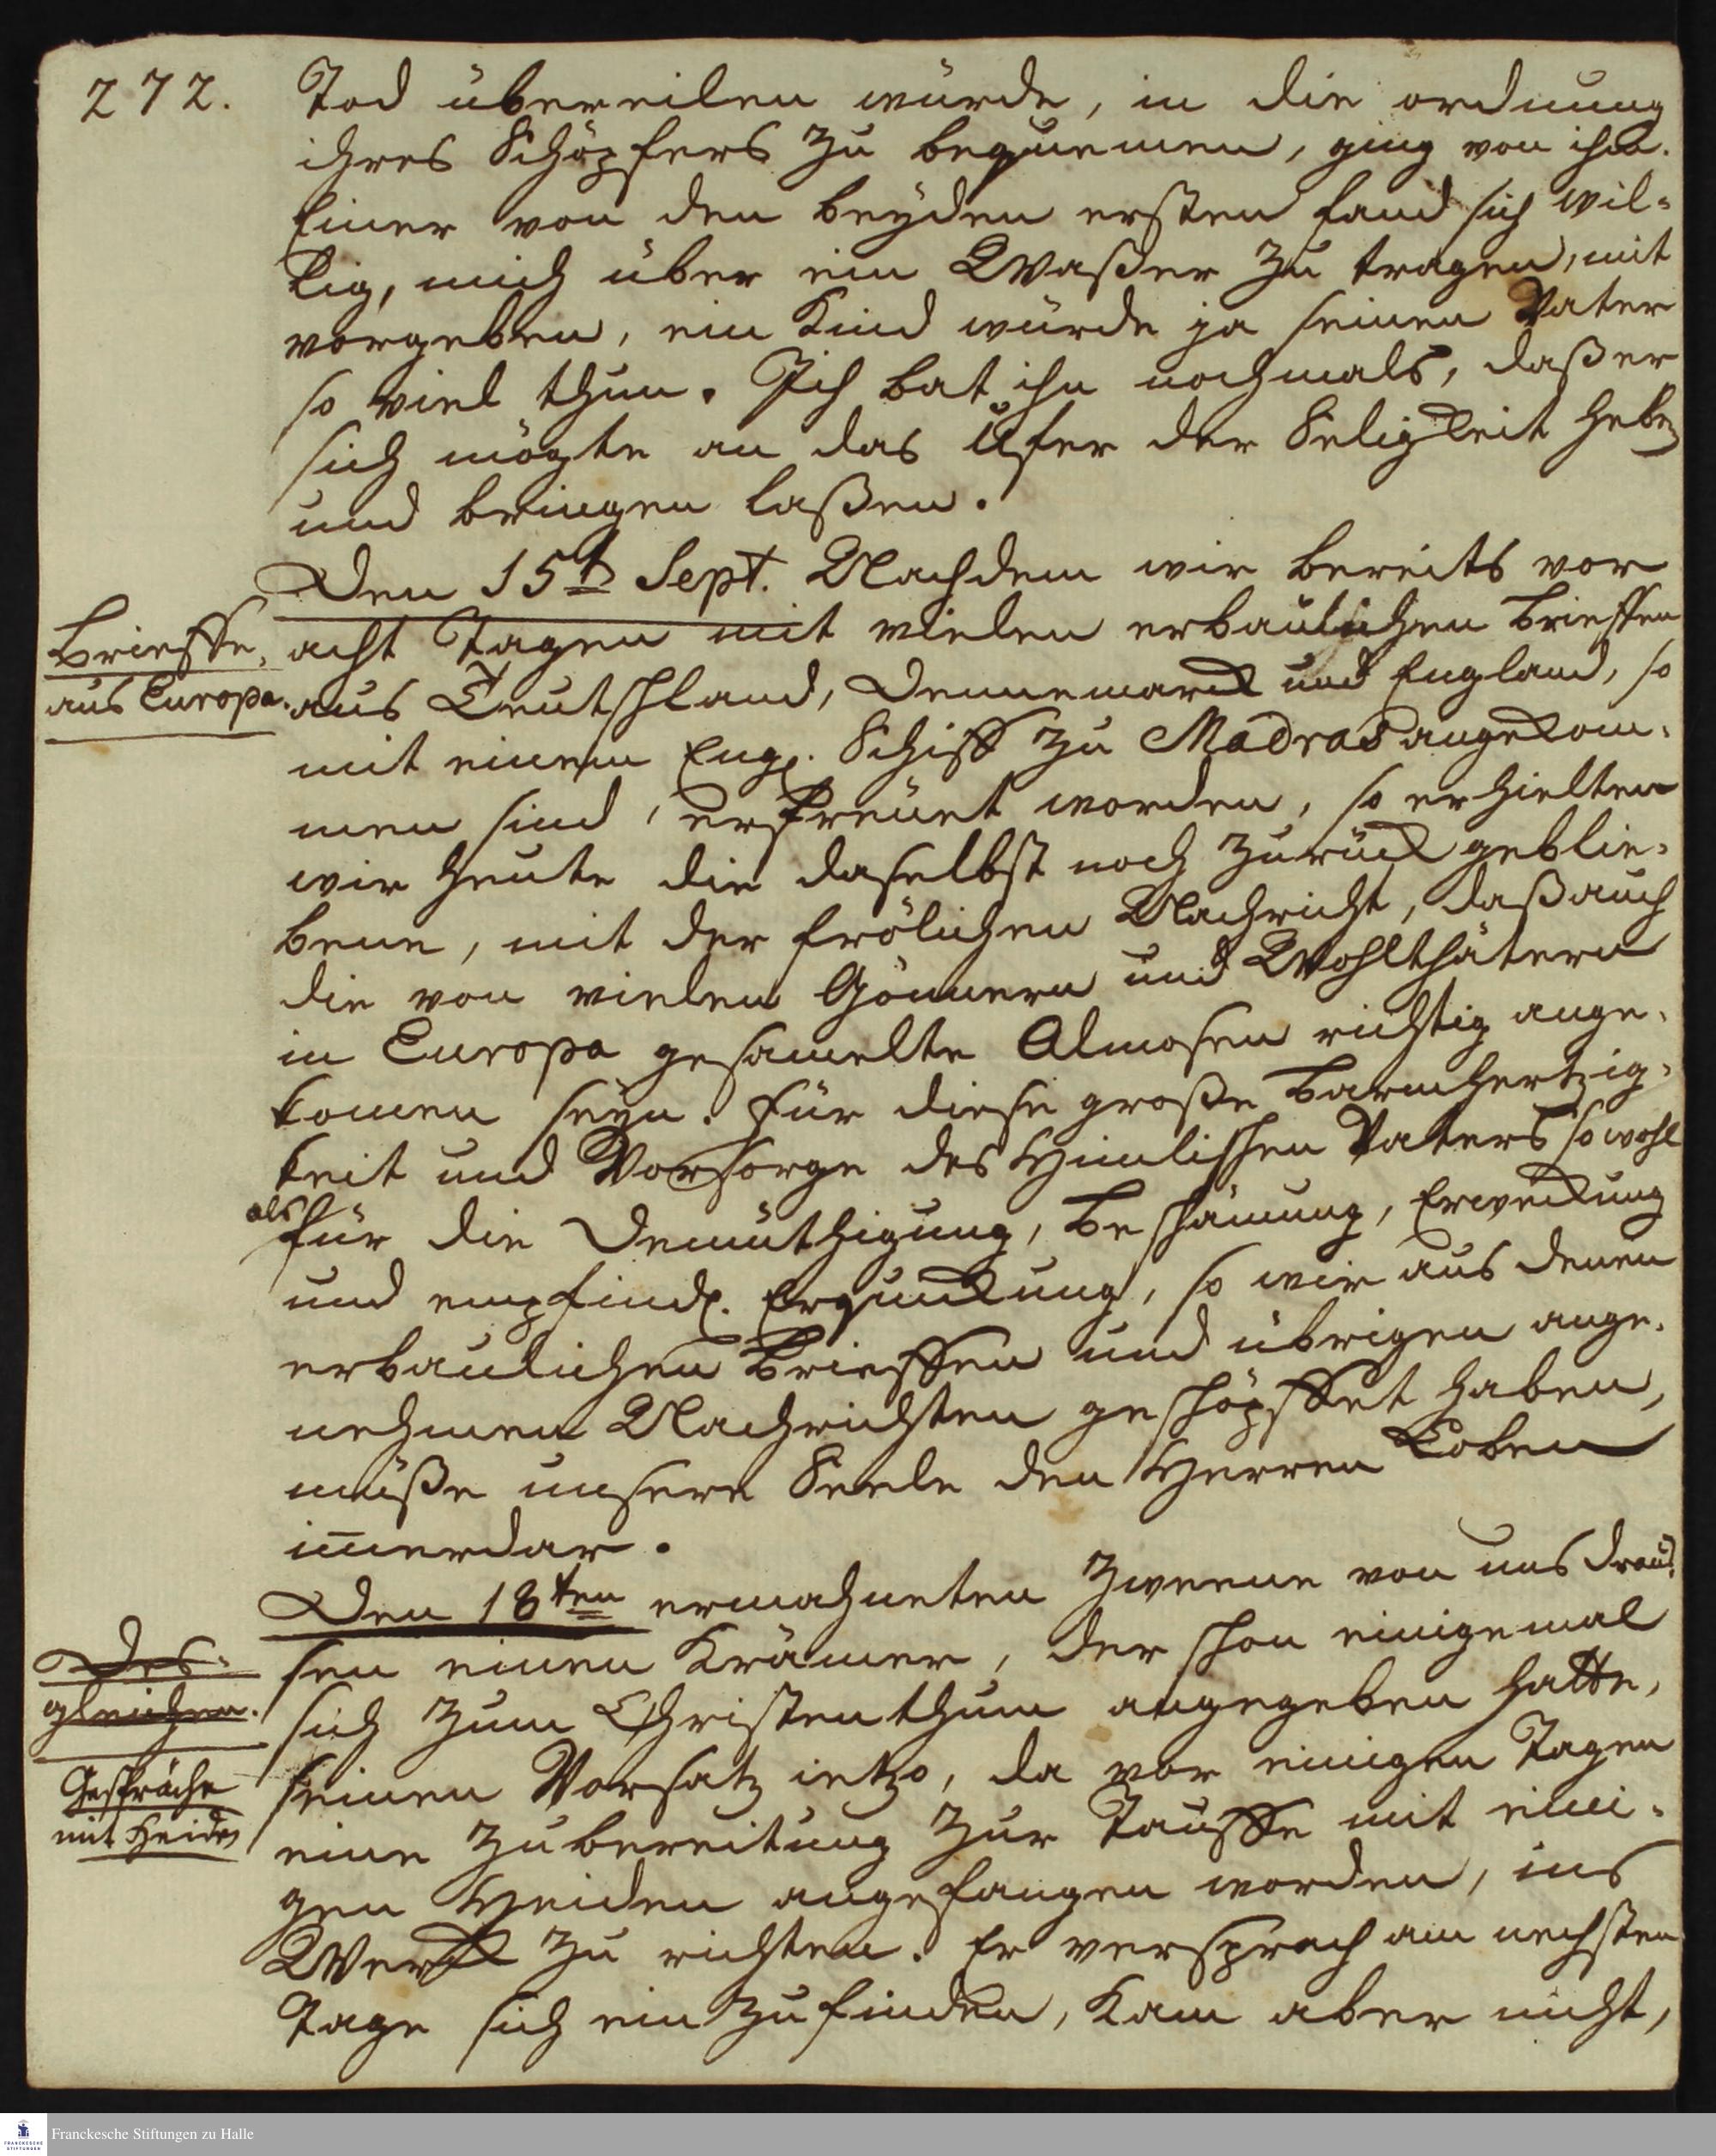 272.
Tod übereilen würde, in die ordnung
ihres Schöpfers zu bequemen, ging von ihm.
Einer von den beyden ersten fand sich wil-
lig, mich über ein Waßer zu tragen, mit
vorgeben, ein Kind würde ja seinen Vater
so viel thun. Ich bat ihn nochmals, daß er
sich mögte an das Ufer der Seligkeit heben
und bringen laßen.
Den 15t Sept. Nachdem wir bereits vor
Brieffe,
acht Tagen mit vielen erbaulichen Brieffen
aus Europa.
aus Teutschland, Dennemarck und England, so
mit einem Engl. Schiff zu Madras angekom-
men sind, erfreuet worden, so erhielten
wir heute die daselbst noch zurück geblie-
bene, mit der frölichen Nachricht, daß auch
die von vielen Gönnern und Wohlthätern
in Europa gesamelte Almosen richtig ange-
komen seyn. Für diese große Barmhertzig-
keit und Vorsorge des Himlischen Vaters so wohl
als für die Demüthigung, Beschämung, Erweckung
und empfindl. Erquickung, so wir aus denen
erbaulichen Brieffen und übrigen ange-
nehmen Nachrichten geschöpffet haben,
müße unsere Seele den Herren Loben
imerdar.
Den 18ten ermahneten Zweene von uns draus-
Des-
sen einen Krämer, der schon einigemal
gleichen.
sich zum Christenthum angegeben hatte,
Gespräche
seinen Vorsatz ietzo, da vor einigen Tagen
mit Heiden
eine Zubereitung zur Tauffe mit eini-
gen Heiden angefangen worden, ins
Werck zu richten. Er versprach am nechsten
Tage sich ein zu finden, kam aber nicht,
FRANCKESCHE STIFTUNGEN
Franckesche Stiftungen zu Halle